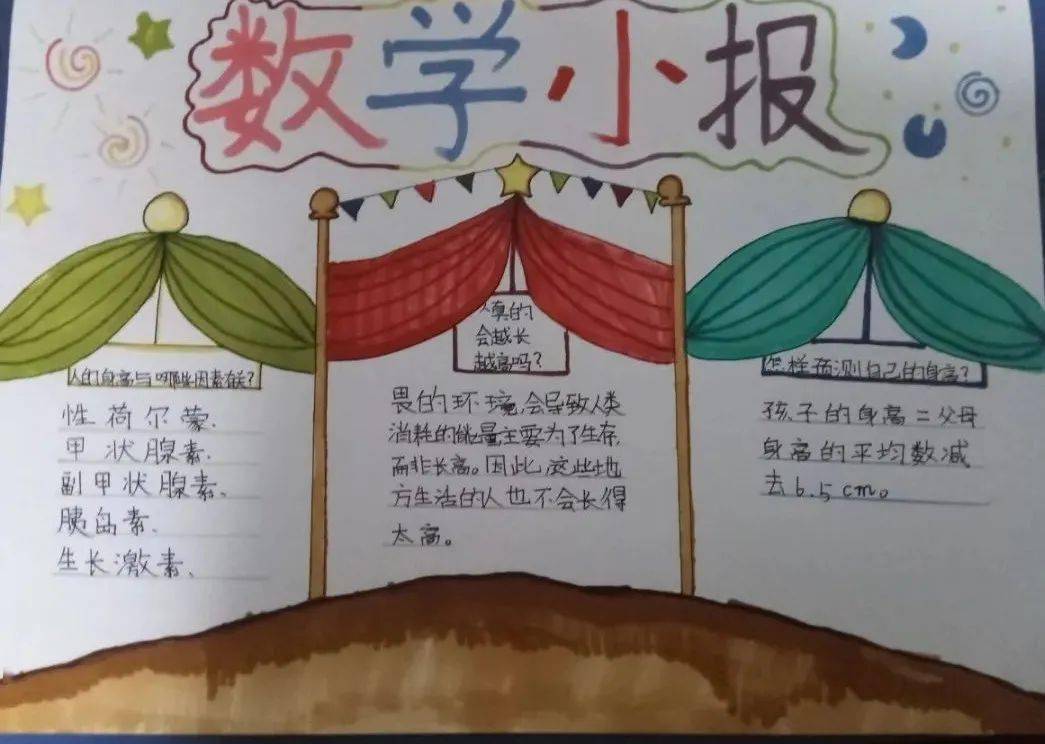 数学小报
人的身高与哪些因素有关?
性荷尔蒙.
甲状腺素.
副甲状腺素、
胰岛素.
生长激素、
人真的
会越长
越高吗?
畏的环境,会导致人类
消耗的能量主要为了生存,
而非长高。因此,这些地
方生活的人也不会长得
太高。
怎样预测自己的身高?
孩子的身高=父母
身高的平均数减
去6.5cm。